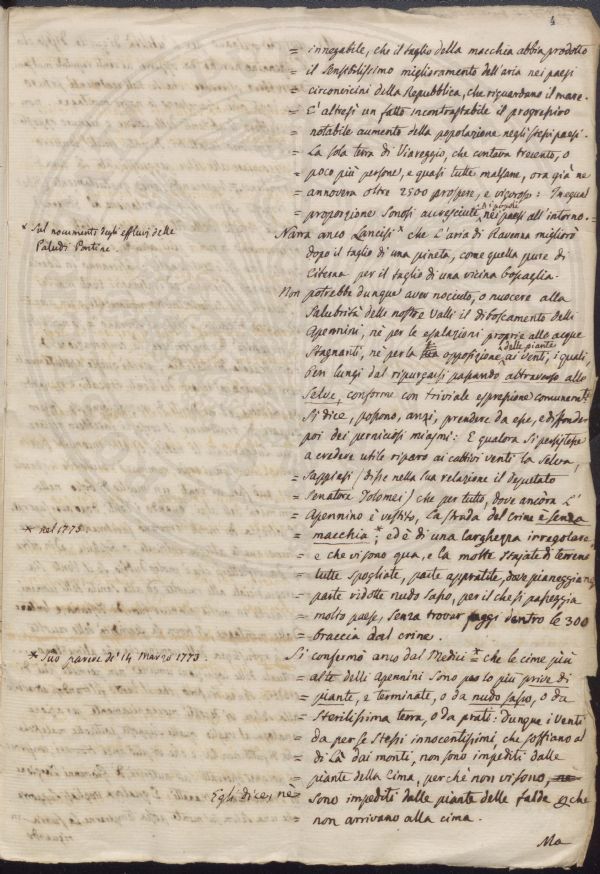 4
= innegabile, che il taglio della macchia abbia prodotto
= il sensibilissimo miglioramento dell'aria nei paesi
= circonvicini della Repubblica, che riguardano il mare.
= E' altresì un fatto incontrastabile il progressivo
= notabile aumento della popolazione negli stessi paesi.
= La sola terra di Viareggio, che contava trecento, o
= poco più persone, e quasi tutte malsane, ora già ne
= annovera oltre 2500 prospere, e vigorose: In egual
= proporzione sonosi accresciute nei paesi all'intorno. =
* Sul nocumento degli effluvi delle
Paludi Pontine.
Narra anco Lancisi * che l'aria di Ravenna migliorò
dopo il taglio di una pineta, come quella pure di
Citerna per il taglio di una vicina boscaglia.
Non potrebbe dunque aver nociuto, o nuocere alla
salubrità delle nostre Valli il diboscamento delli
Apennini, nè per le esalazioni proprie alle acque
stagnanti, nè per la opposizione delle piante ai venti, i quali
ben lungi dal ripurgarsi passando attraverso alle
selve, conforme con triviale espressione comunemente
si dice, possono, anzi, prendere da esse, e diffonder
poi dei perniciosi miasmi: E qualora si persistesse
a credere utile riparo ai cattivi venti la selva,
= sappiasi (disse nella sua relazione il deputato
= Senatore Tolomei) che per tutto, dove ancora l'
= Apennino è vestito, la strada del crine è senza
* nel 1775
= macchia *, ed è di una larghezza irregolare
= e che vi sono qua, e la molte stajate di terreno
= tutte spogliate, parte appratite, dove pianeggiano
= parte ridotte nudo sasso, per il che si passeggia
= molto paese, senza trovar faggi dentro le 300
= braccia dal crine.
* Suo parere de' 14 Marzo 1773.
Si confermò anco dal Medici * = che le cime più
= alte delli Apennini sono per lo più prive di
= piante, e terminate, o da nudo sasso, o da
= sterilissima terra, o da prati: dunque i venti
= da per se stessi innocentissimi, che soffiano al
= di là dai monti, non sono impediti dalle
= piante della cima, perchè non vi sono,
Egli dice, nè = sono impediti dalle piante delle falda che
= non arrivano alla cima.
Ma